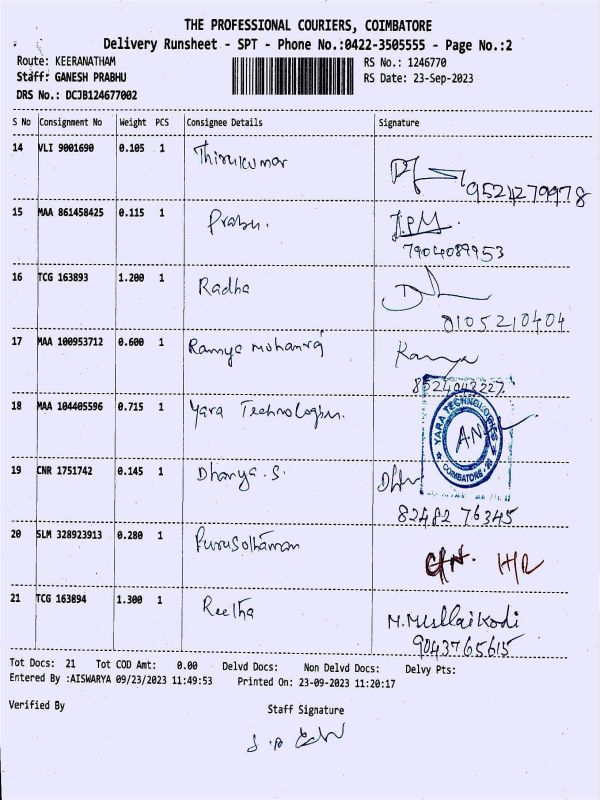 THE PROFESSIONAL COURIERS, COIMBATORE
Delivery Runsheet - SPT - Phone No.:0422-3505555 - Page No.:2
Route: KEERANATHAM RS No.: 1246770
Staff: GANESH PRABHU RS Date: 23-Sep-2023
DRS No.: DCJB124677002
S No Consignment No Weight PCS Consignee Details Signature
14 VLI 9001690 0.105 1 Thirukumar
9524279978
15 MAA 861458425 0.115 1 Prabu.
7904089953
16 TCG 163893 1.200 1 Radha
8105210404
17 MAA 100953712 0.600 1 Ramya mohanraj Ramya
8524043227
18 MAA 104405596 0.715 1 Yara Technologies.
YARA TECHNOLOGIES
A.N
COIMBATORE
19 CNR 1751742 0.145 1 Dhanya.S.
82482 76345
20 SLM 328923913 0.280 1 Purusothaman
H/R
21 TCG 163894 1.300 1 Reetha M.Mullaikodi
9043765615
Tot Docs: 21 Tot COD Amt: 0.00 Delvd Docs: Non Delvd Docs: Delvy Pts:
Entered By :AISWARYA 09/23/2023 11:49:53 Printed On: 23-09-2023 11:20:17
Verified By Staff Signature